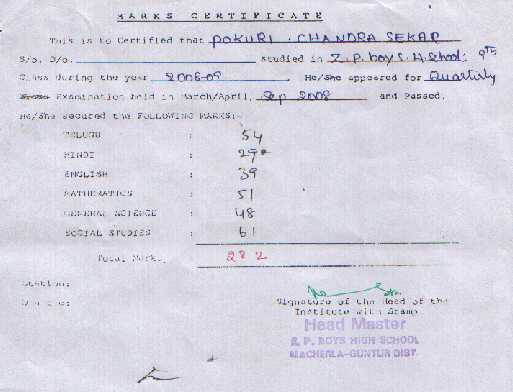 MARKS CERTIFICATE
This is to Certified that POKURI . CHANDRA SEKAR
S/o. D/o. studied in Z.P. boys. H. School. 9th
Class during the year 2008-09 He/She appeared for Quarterly
Examination held in March/April, Sep 2008 and Passed.
He/She secured the FOLLOWING MARKS:-
TELUGU : 54
HINDI : 29*
ENGLISH : 39
MATHEMATICS : 51
GENERAL SCIENCE : 48
SOCIAL STUDIES : 61
Total Mark. 282
Station:
Date:
Signature of the Head of the
Institute with Stamp.
Head Master
Z. P. BOYS HIGH SCHOOL
MACHERLA-GUNTUR DIST.